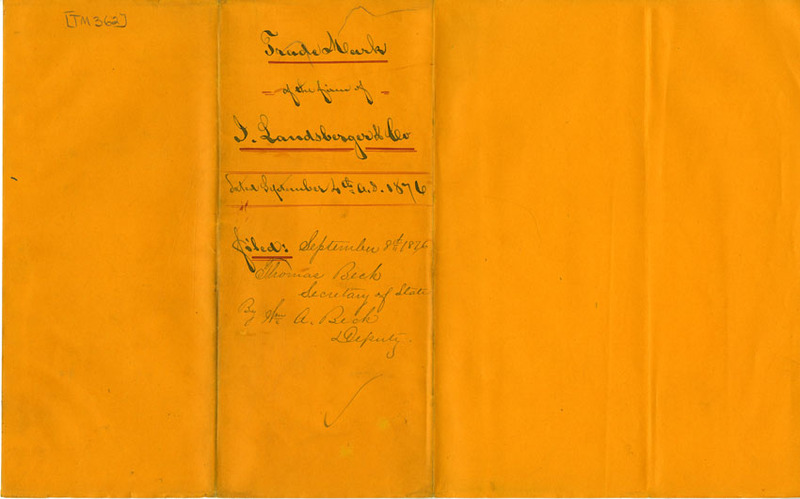 [TM 362]
Trade Mark
of the firm of
I. Landsberger & Co
Dated September 4th A.D. 1876
filed: September 8th 1876
Thomas Beck
Secretary of State
By Wm A. Beck
Deputy.